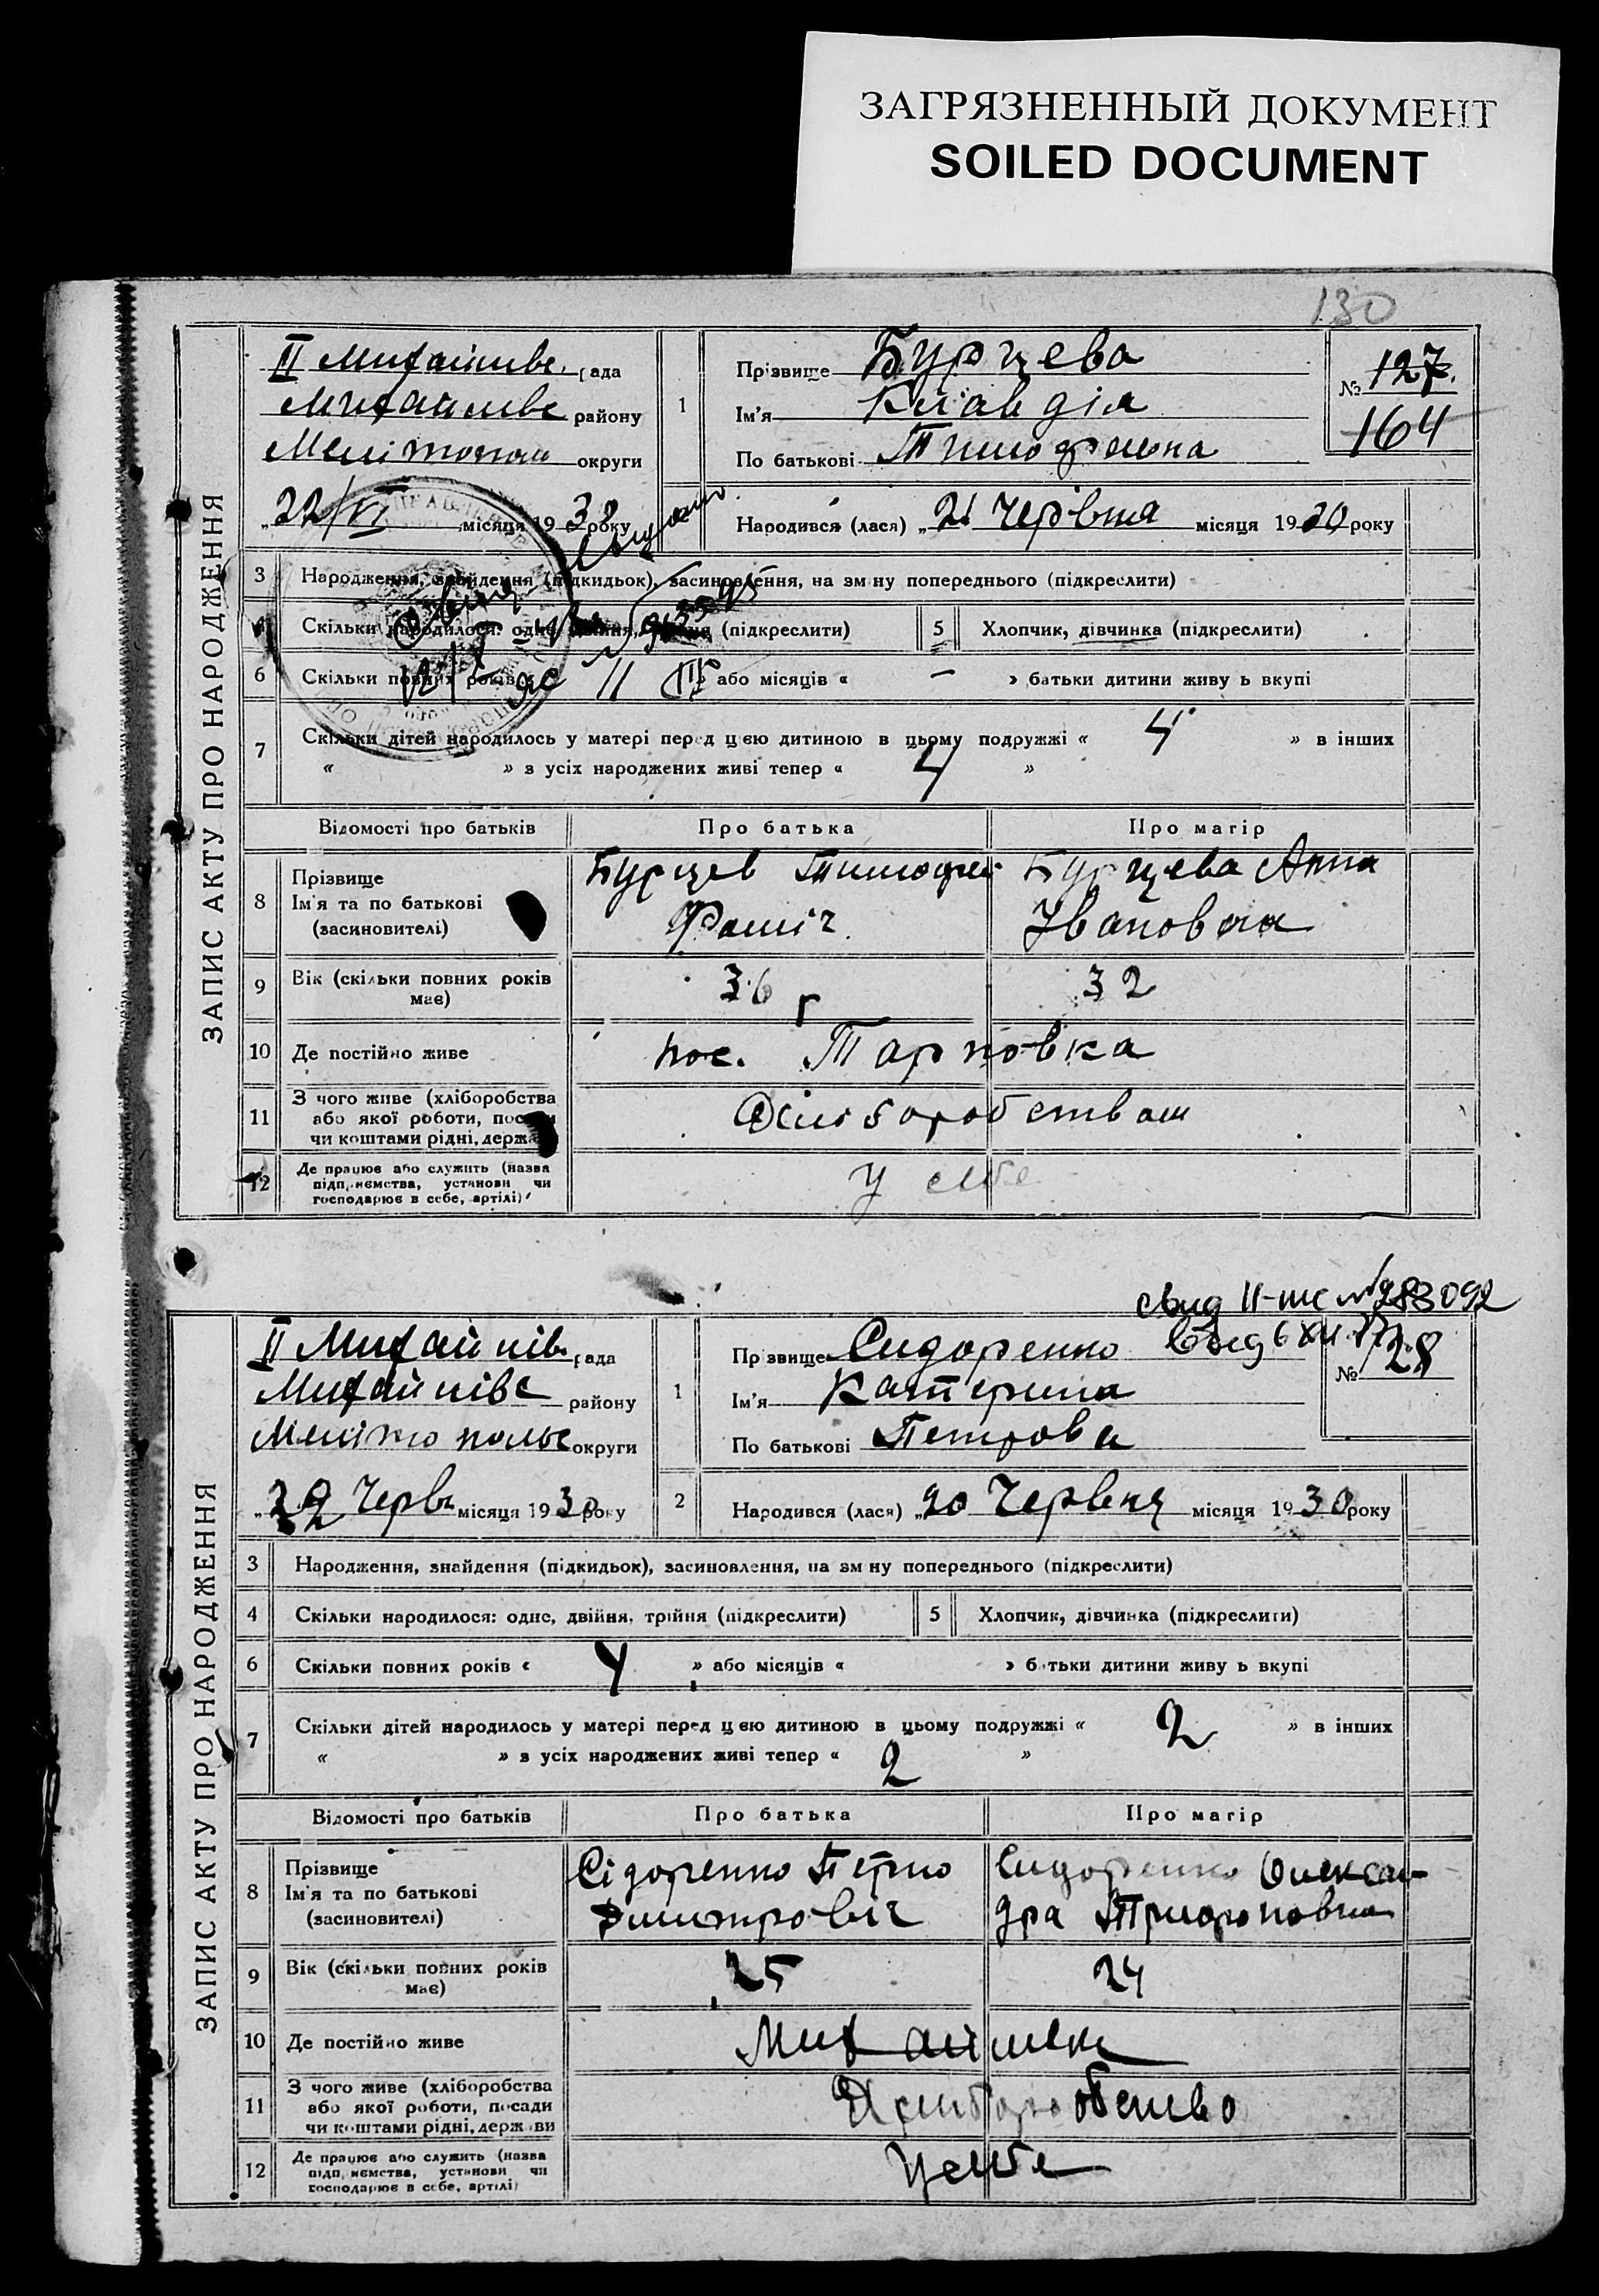 ЗАГРЯЗНЕННЫЙ ДОКУМЕНТ
SOILED DOCUMENT
130
ЗАПИС АКТУ ПРО НАРОДЖЕННЯ
II Михайлівс. рада
Михайлівс району
Мелітополь округи
22/VI місяця 1930 року
1
Прізвище Бурцева
Ім'я Клавдія
По батькові Тимофієвна
№ 127.
164
Народився (лася) „21 Червня місяця 1930 року
3 Народження, знайдення (підкидьок), засиновлення, на зміну попереднього (підкреслити)
4 Скільки народилося: одне, двійня, трійня (підкреслити)
5 Хлопчик, дівчинка (підкреслити)
6 Скільки повних років 11 або місяців « – » батьки дитини живуть вкупі
7 Скільки дітей народилось у матері перед цією дитиною в цьому подружжі « 4 » в інших
« » з усіх народжених живі тепер « 4 »
Відомості про батьків Про батька Про матір
8 Прізвище
Ім'я та по батькові
(засиновителі)
Бурцев Тимофей
Фоміч.
Бурцева Анна
Івановна
9 Вік (скільки повних років має) 36 г 32
10 Де постійно живе пос. Тарновка
11 З чого живе (хліборобства
або якої роботи, посади
чи коштами рідні, держави
Хліборобством
12 Де працює або служить (назва
підприємства, установи чи
господарює в себе, артілі)
У себе
свид II-шс № 283092
Выд 6 XII
ЗАПИС АКТУ ПРО НАРОДЖЕННЯ
II Михайлів рада
Михайлівс району
Мелітопольс округи
„22 Червн місяця 1930 року
1
Прізвище Сидоренко
Ім'я Катерина
По батькові Петрова
№ 128
2 Народився (лася) „20 Червня місяця 1930 року
3 Народження, знайдення (підкидьок), засиновлення, на зміну попереднього (підкреслити)
4 Скільки народилося: одне, двійня, трійня (підкреслити)
5 Хлопчик, дівчинка (підкреслити)
6 Скільки повних років « 4 » або місяців « » батьки дитини живуть вкупі
7 Скільки дітей народилось у матері перед цією дитиною в цьому подружжі « 2 » в інших
« » з усіх народжених живі тепер « 2 »
Відомості про батьків Про батька Про матір
8 Прізвище
Ім'я та по батькові
(засиновителі)
Сідоренко Петро
Дмитровіч
Сидоренко Олексан-
дра Трифоновна
9 Вік (скільки повних років має) 25 24
10 Де постійно живе Михайлівк
11 З чого живе (хліборобства
або якої роботи, посади
чи коштами рідні, держави
Хліборобство
12 Де працює або служить (назва
підприємства, установи чи
господарює в себе, артілі)
У себе